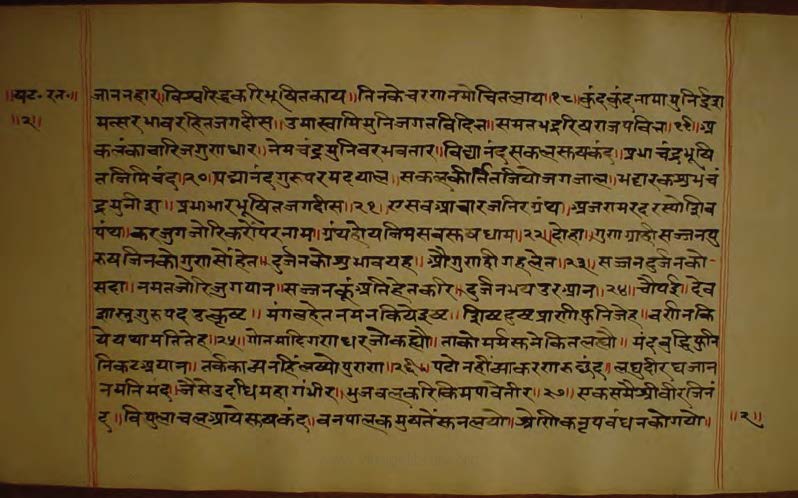 ॥षट॰रत्न॰॥ जाननहार॥विश्वरिद्धकरिभूषितकाय॥तिनकेचरणनमोचितलाय॥१८॥कुंदकुंदनामामुनिईश॥
॥२॥ मत्सरभावरहितजगदीस॥उमास्वामिमुनिजगतविदित॥समतभद्ररिषराजपवित॥१९॥अ
कलंकाचारिजगुणधार॥नेमचंद्रमुनिवरभवतार॥विद्यानंदसकलसुखकंद॥प्रभाचंद्रभूषि
तजिमिचंद॥२०॥पद्मानंदगुरूपरमदयाल॥सकलकीर्तिजियोजगजाल॥भट्टारकशुभचं
द्रमुनीश॥प्रभाभारभूषितजगदीस॥२१॥एसबआचारजनिरग्रंथ॥अजरामरदरस्योशिव
पंथ॥करजुगजोरिकरोंपरनाम॥ग्रंथहोयजिमसबसुखधाम॥२२॥दोहा॥गुणग्राहीसज्जनपु
रुषजिनकोगुणसोंहेत॥दुर्जनकोशुभावयह॥औगुणहीगहलेत॥२३॥सज्जनदुर्जनको
सदा॥नमतजोरिजुगपान॥सज्जनकूंअतिहेतकरि॥दुर्जनभयउरआन॥२४॥चौपई॥देव
शास्त्रगुरुपदउत्कृष्ट॥मंगलहेतनमनकियेइष्ट॥शिष्टदुष्टप्राणीफुनिजेह॥वर्णनकि
येयथामतितेह॥२५॥गौतमादिगणधरजोकह्यौ॥ताकोमर्मसुनेकितलह्यौ॥मंदबुद्धिफुनि
निकटअयान॥तर्ककाव्यनहिंलख्योपुराण॥२६॥पढोनहींव्याकरणरुछंद॥लघुदीरघजान
नमतिमंद॥जैसेउदधिमहागंभीर॥भुजबलकरिकिमपावेतीर॥२७॥एकसमैश्रीवीरजिनं
द॥विपुलाचलआयेसुखकंद॥वनपालकमुखतेंसुनलयो॥श्रेणिकनृपवंधनकोगयो॥ ॥२॥